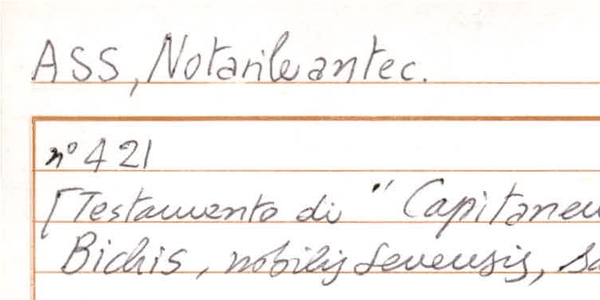 ASS, Notarile antec.
n° 421
[Testamento di "Capitaneu
Bichis, nobilis senensis, sa